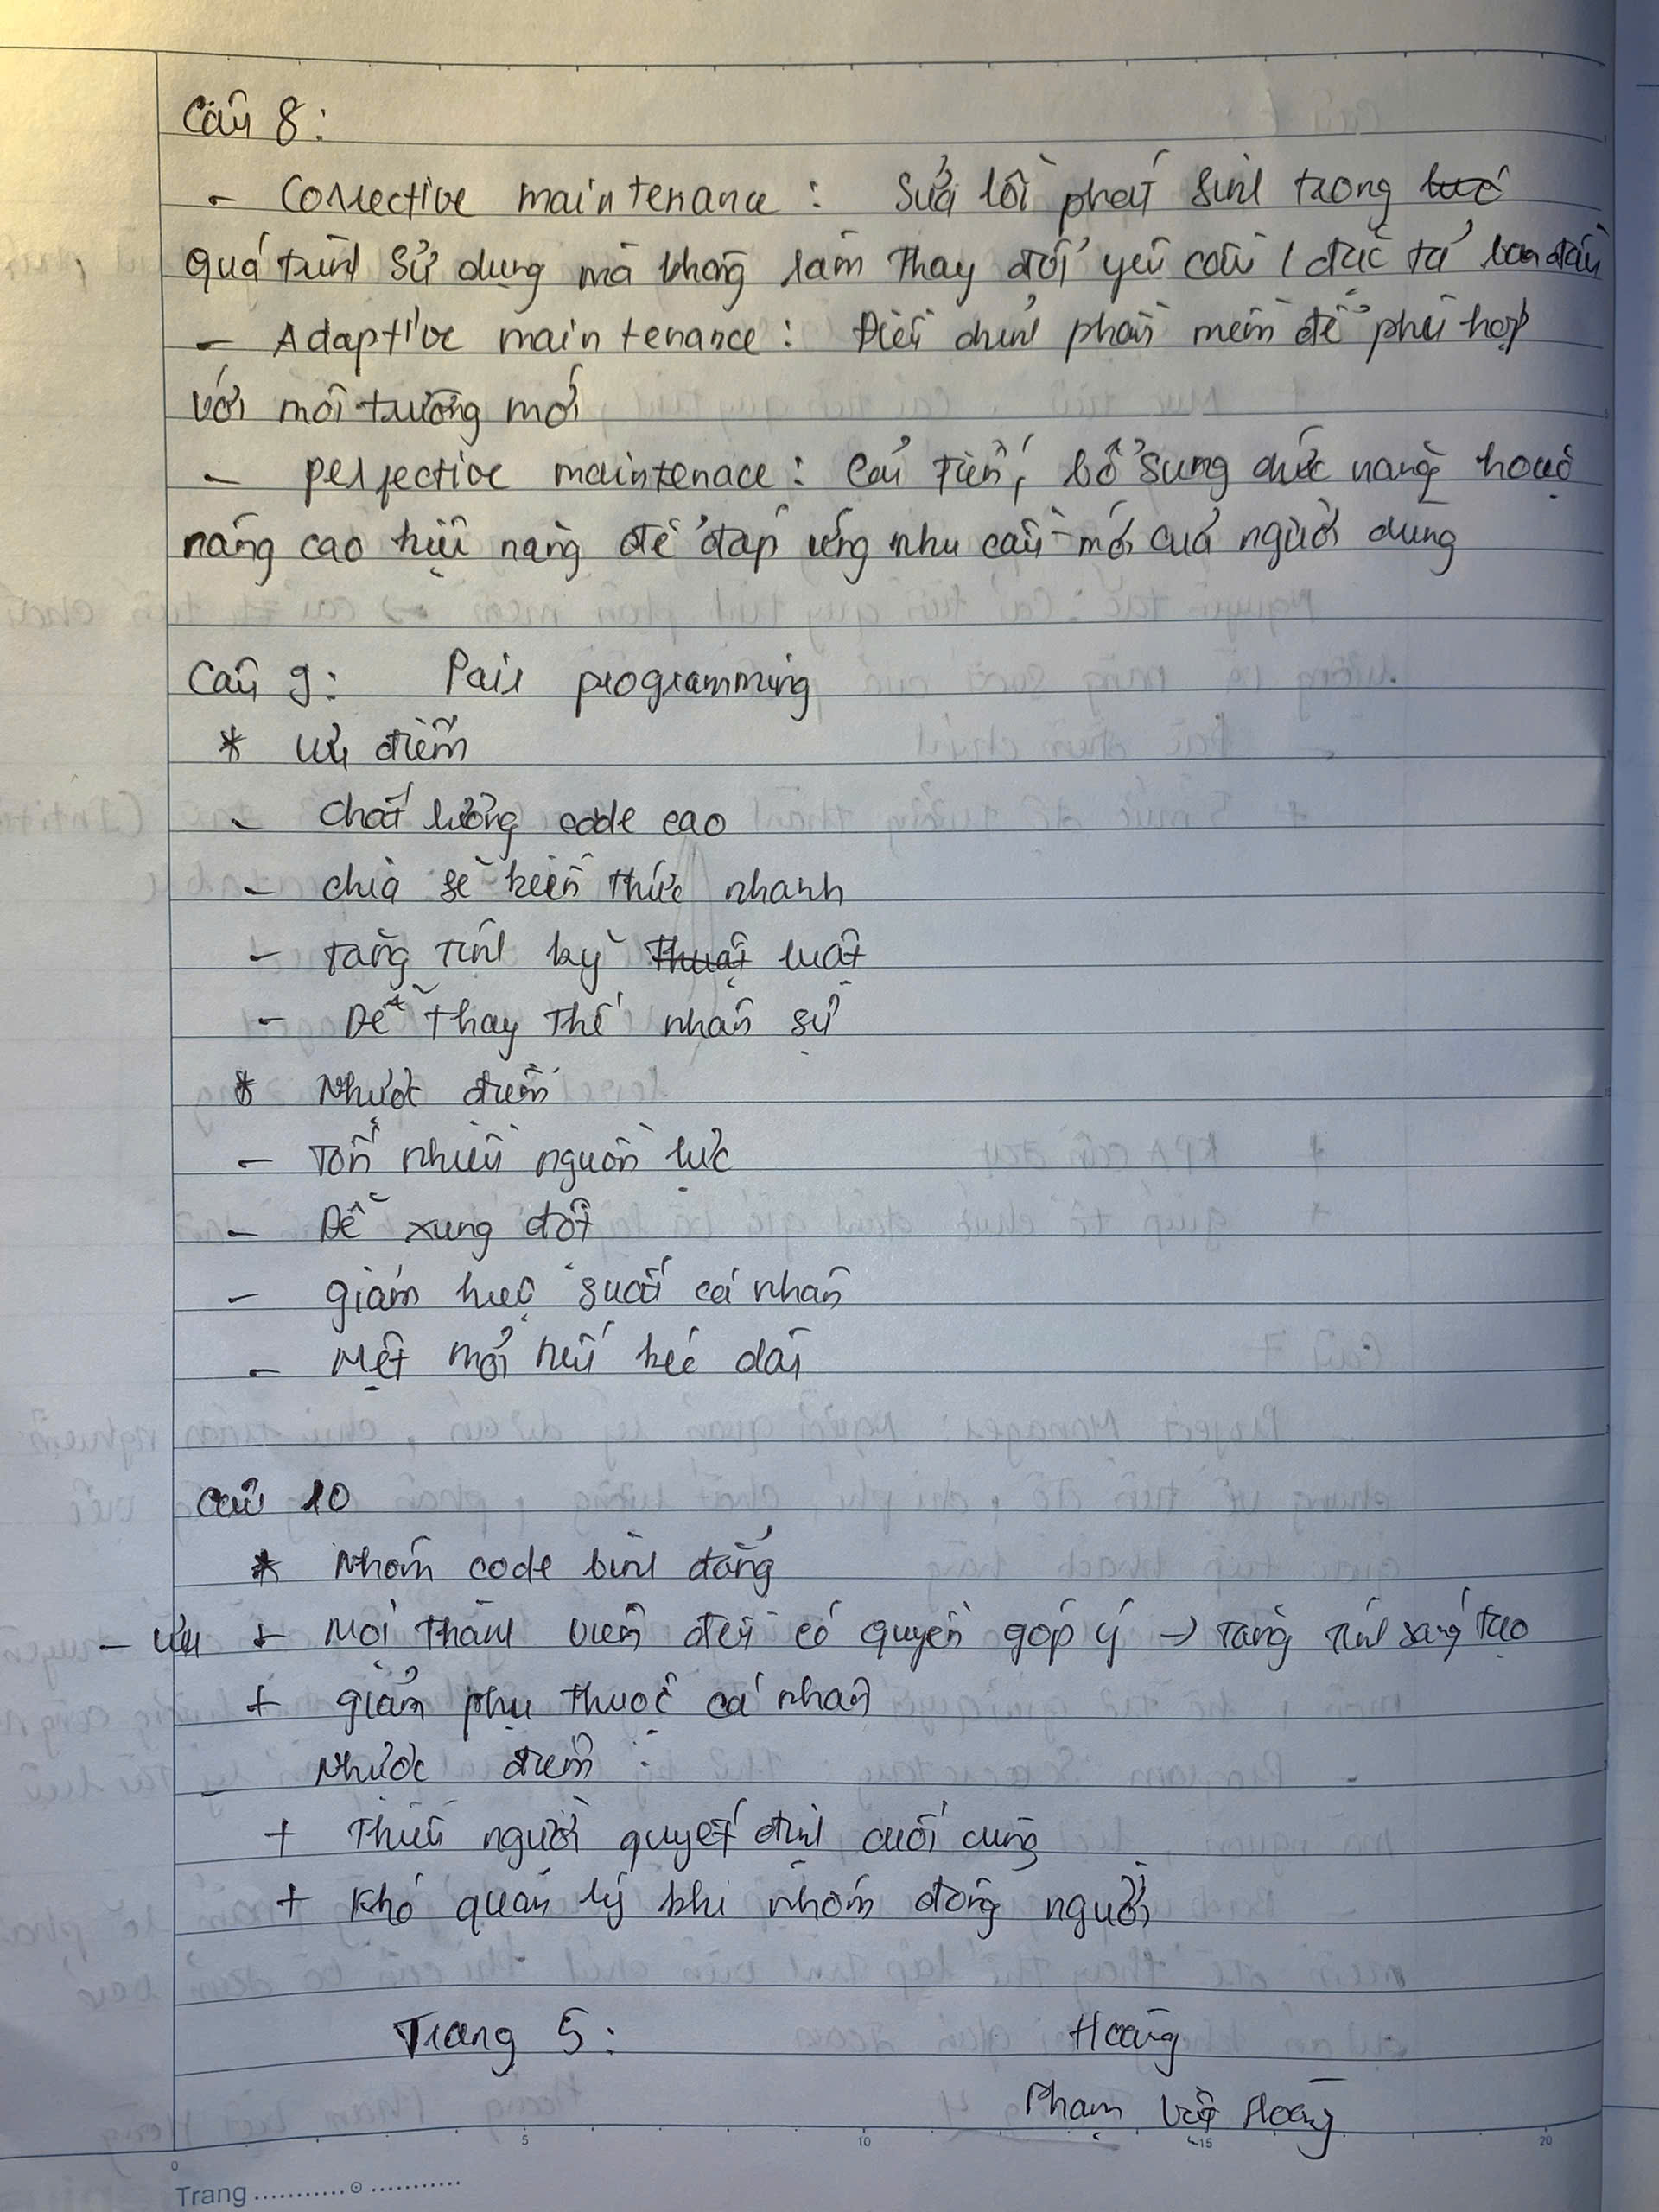 Câu 8:
- Corrective maintenance: Sửa lỗi phát sinh trong
quá trình sử dụng mà không làm thay đổi yêu cầu / đặc tả ban đầu
- Adaptive maintenance: Điều chỉnh phần mềm để phù hợp
với môi trường mới
- perfective maintenace: Cải tiến, bổ sung chức năng hoặc
nâng cao hiệu năng để đáp ứng nhu cầu mới của người dùng
Câu 9: Pair programming
* Ưu điểm
- Chất lượng code cao
- chia sẻ kiến thức nhanh
- tăng tính kỷ thuật luật
- Dễ thay thế nhân sự
* Nhược điểm
- Tốn nhiều nguồn lực
- Dễ xung đột
- giảm hiệu suất cá nhân
- Mệt mỏi nếu kéo dài
Câu 10
* Nhóm code bình đẳng
- Ưu + Mọi thành viên đều có quyền góp ý → Tăng tính sáng tạo
+ giảm phụ thuộc cá nhân
- Nhược điểm:
+ Thiếu người quyết định cuối cùng
+ Khó quản lý khi nhóm đông người
Trang 5: Hoàng
Phạm Việt Hoàng
0 5 10 15 20
Trang